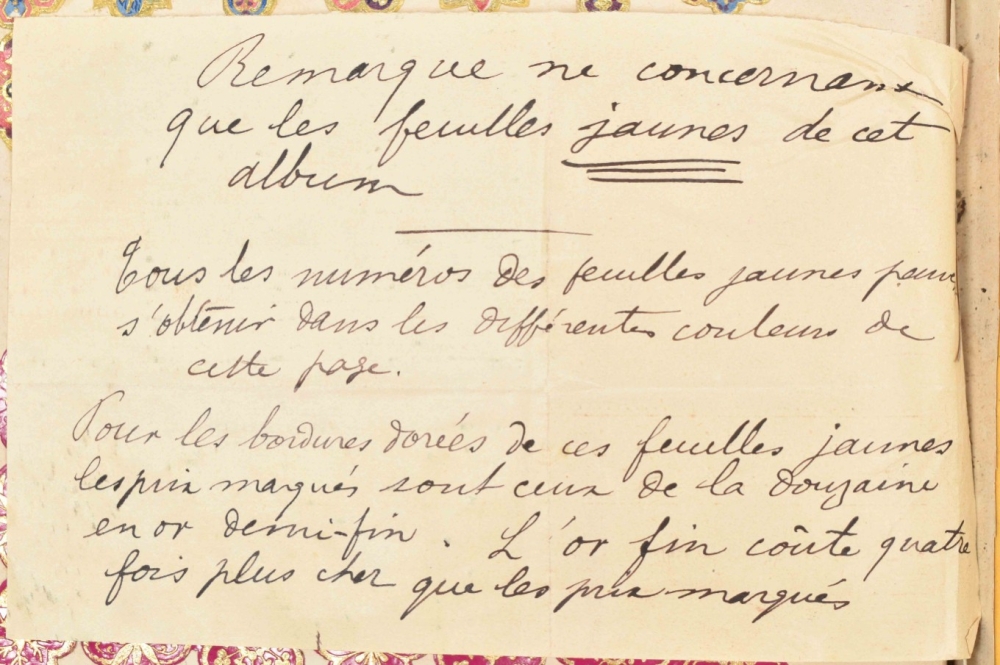 Remarque ne concernant
que les feuilles jaunes de cet
album
Tous les numéros des feuilles jaunes
s'obtenir dans les différentes couleurs de
cette page.
Pour les bordures dorées de ces feuilles jaunes
les prix marqués sont ceux de la douzaine
en or demi-fin. L'or fin coûte quatre
fois plus cher que les prix marqués